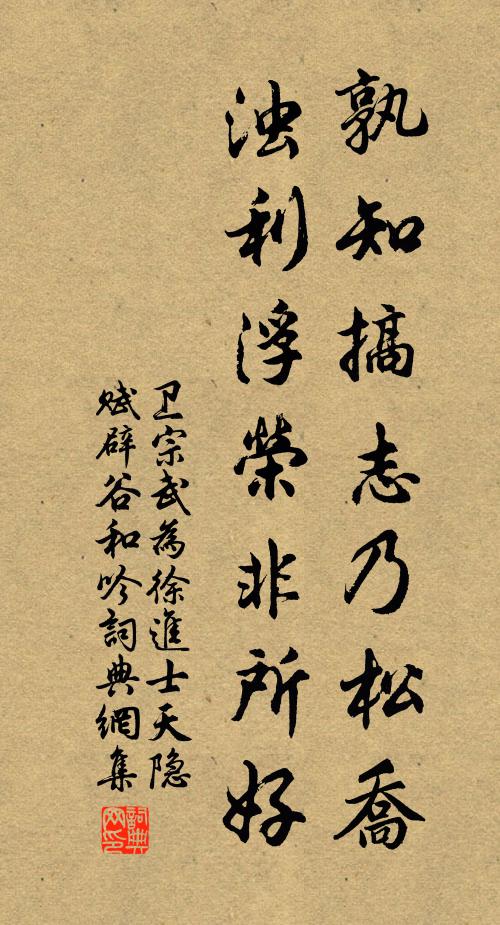 孰知搞志乃松喬
浊利浮榮非所好
卫宗武為徐進士天隐
赋辟谷和吟詞典網集
詞典网印